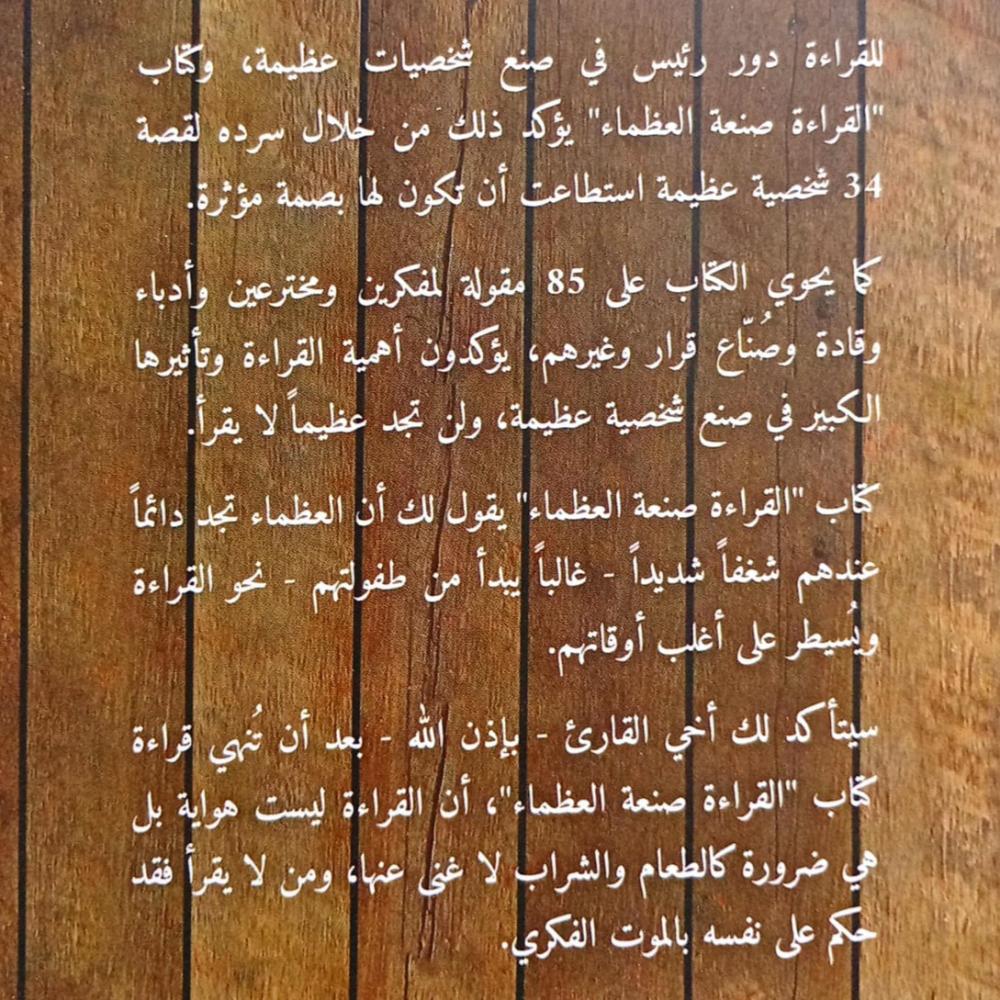 للقراءة دور رئيس في صنع شخصيات عظيمة، وكتاب
"القراءة صنعة العظماء" يؤكد ذلك من خلال سرده لقصة
34 شخصية عظيمة استطاعت أن تكون لها بصمة مؤثرة.
كما يحوي الكتاب على 85 مقولة لمفكرين ومخترعين وأدباء
وقادة وصُنّاع قرار وغيرهم، يؤكدون أهمية القراءة وتأثيرها
الكبير في صنع شخصية عظيمة، ولن تجد عظيماً لا يقرأ.
كتاب "القراءة صنعة العظماء" يقول لك أن العظماء تجد دائماً
عندهم شغفاً شديداً - غالباً يبدأ من طفولتهم - نحو القراءة
ويُسيطر على أغلب أوقاتهم.
سيتأكد لك أخي القارئ - بإذن الله - بعد أن تُنهي قراءة
كتاب "القراءة صنعة العظماء"، أن القراءة ليست هواية بل
هي ضرورة كالطعام والشراب لا غنى عنها، ومن لا يقرأ فقد
حكم على نفسه بالموت الفكري.